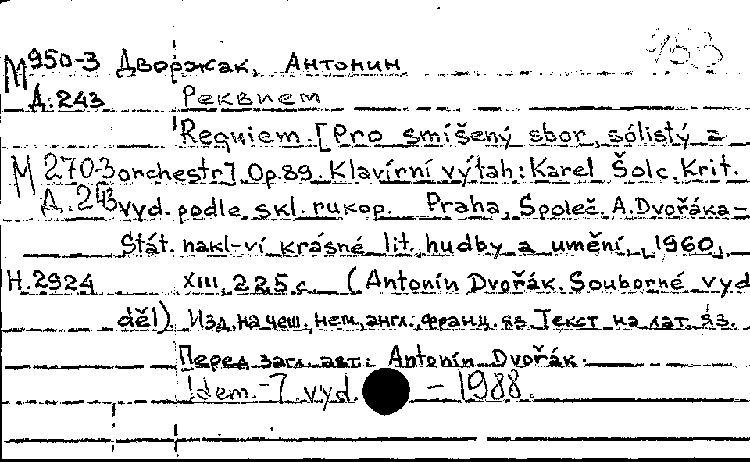 М 950-3 Дворжак, Антонин
Д. 243 Реквием
Requiem. [Pro smíšený sbor, sólistý a
М 270-3 orchestr] Op. 89. Klavírní výtah: Karel Šolc. Krit.
Д. 243 vyd. podle skl. rukop. Praha, Společ. A. Dvořáka –
Stát. nakl-ví krásné lit. hudby a umění, 1960,
Н. 2924 XIII, 225 с. (Antonín Dvořák. Souborné vyd
děl). Изд. на чеш., нем., англ., франц. яз. Текст на лат. яз.
Перед загл. авт.: Antonín Dvořák.
Idem. – 7. vyd. – 1988.